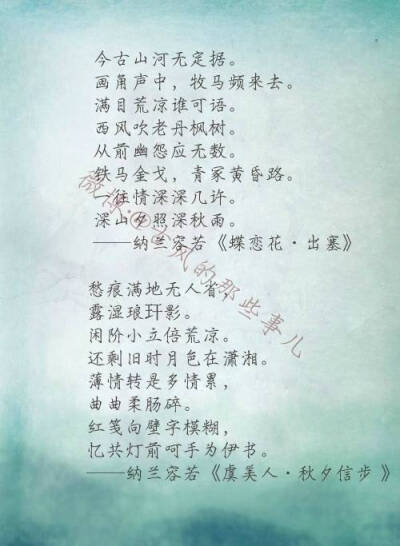 今古山河无定据。
画角声中，牧马频来去。
满目荒凉谁可语。
西风吹老丹枫树。
从前幽怨应无数。
铁马金戈，青冢黄昏路。
一往情深深几许。
深山夕照深秋雨。
——纳兰容若《蝶恋花·出塞》
愁痕满地无人省，
露湿琅玕影。
闲阶小立倍荒凉。
还剩旧时月色在潇湘。
薄情转是多情累，
曲曲柔肠碎。
红笺向壁字模糊，
忆共灯前呵手为伊书。
——纳兰容若《虞美人·秋夕信步 》
风的那些事儿